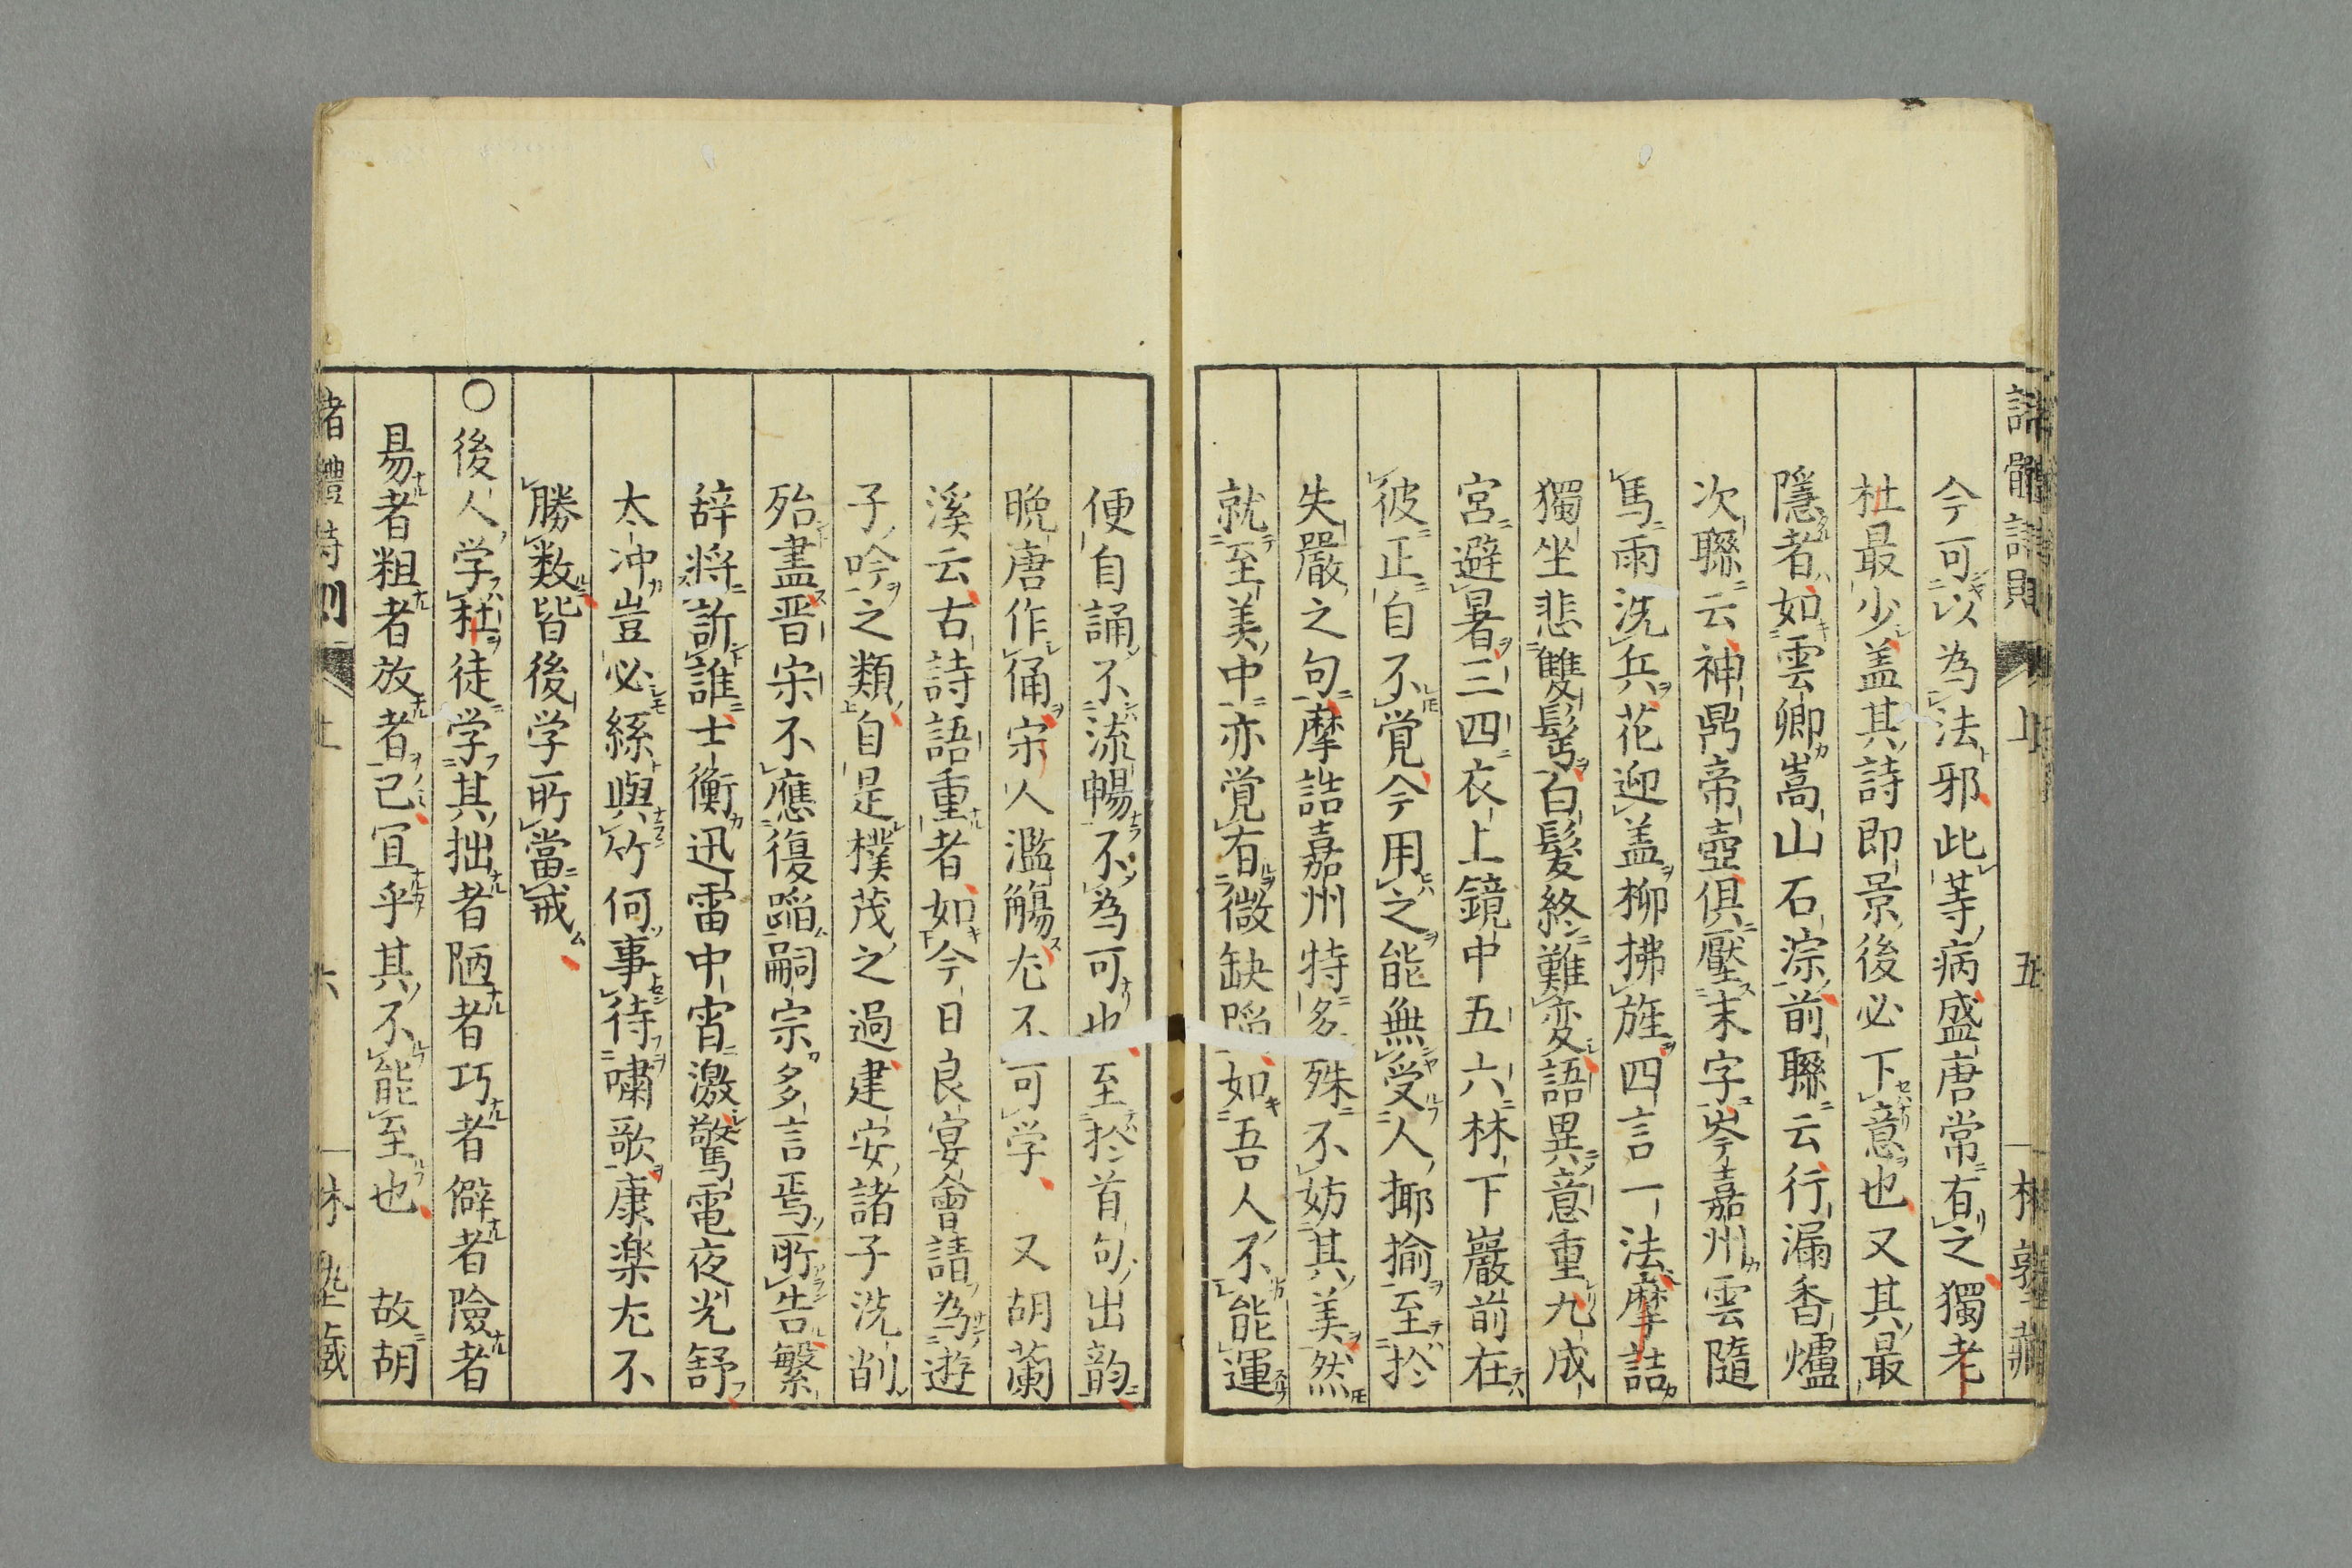 諸體詩則 上 五 林塾藏
今可以為法邪此等病盛唐常有之獨老
杜最少蓋其詩即景後必下意也又其最
隱者如雲卿嵩山石淙前聯云行漏香爐
次聯云神鼎帝壺俱壓末字岑嘉州雲隨
馬雨洗兵花迎蓋柳拂旌四言一法摩詰
獨坐悲雙鬂白髮終難変語異意重九成
宮避暑三四衣上鏡中五六林下巖前在
彼正自不覚今用之能無受人揶揄至於
失嚴之句摩詰嘉州特多殊不妨其美然
就至美中亦覚有微缺陷如吾人不能運
便自誦不流暢不為可也至於首句出韵
晩唐作俑宋人濫觴尤不可学 又胡蘭
溪云古詩語重者如今日良宴會請為遊
子吟之類自是樸茂之過建安諸子洗削
殆盡晋宋不應復蹈嗣宗多言焉所告繁
辞将訴誰士衡迅雷中宵激驚電夜光舒
太冲豈必絲與竹何事待嘯歌康楽尤不
勝数皆後学所當戒
○後人学杜徒学其拙者陋者巧者僻者險者
易者粗者放者已冝乎其不能至也 故胡
諸體詩則 上 六 林塾藏